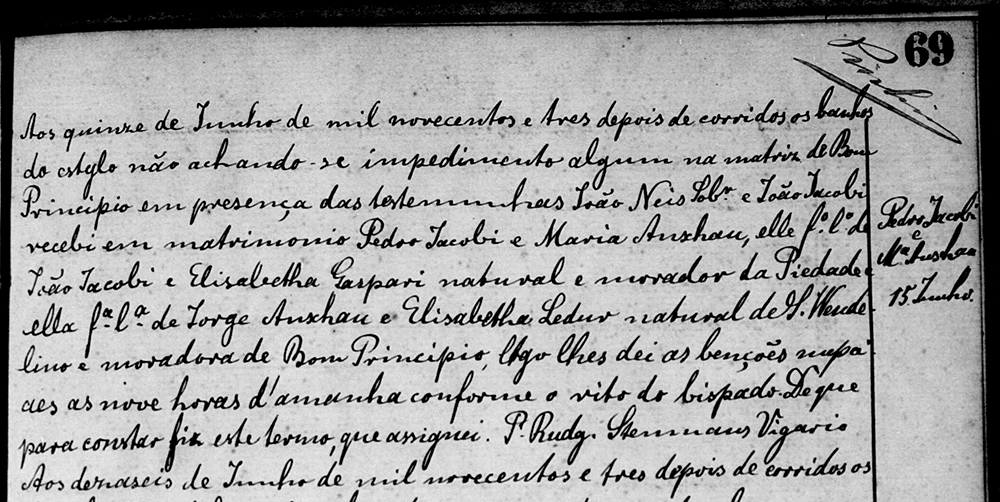 69
Aos quinze de Junho de mil novecentos e tres depois de corridos os banhos
do estylo não achando-se impedimento algum na matriz de Bom
Principio em presença das testemunhas João Neis Sobr. e João Jacobi
recebi em matrimonio Pedro Jacobi e Maria Anshau, elle f.º l.º de
João Jacobi e Elisabetha Gaspari natural e morador da Piedade e
ella f.ª l.ª de Jorge Anshau e Elisabetha Ledur natural de S. Wende-
lino e moradora de Bom Principio, lhes dei as benções nupci-
aes as nove horas d'amanha conforme o rito do bispado. De que
para constar fiz este termo, que assignei. P. Rudg. Stenmans Vigario
Aos dezaseis de Junho de mil novecentos e tres depois de corridos os
Pedro Jacobi
e
M.ª Anshau
15 Junho.